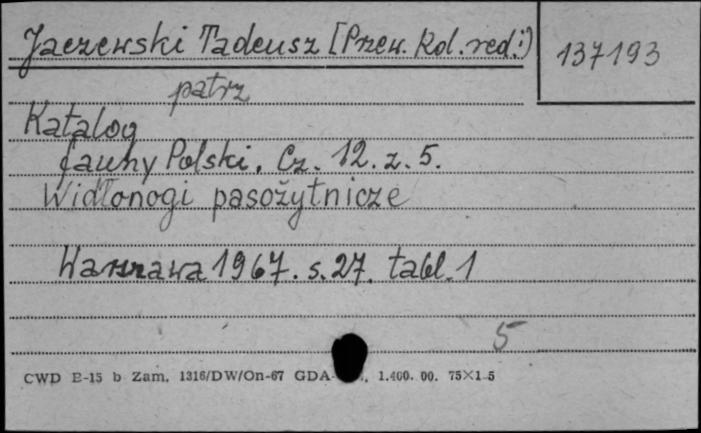 Jaczewski Tadeusz [Przew. Kol. red.:)
137193
patrz
Katalog
fauny Polski. Cz. 12. z. 5.
Widłonogi pasożytnicze
Warszawa 1967. s. 27. tabl. 1
5
CWD E-15 b Zam. 1316/DW/On-67 GDA- ., 1.400.00. 75×1 5